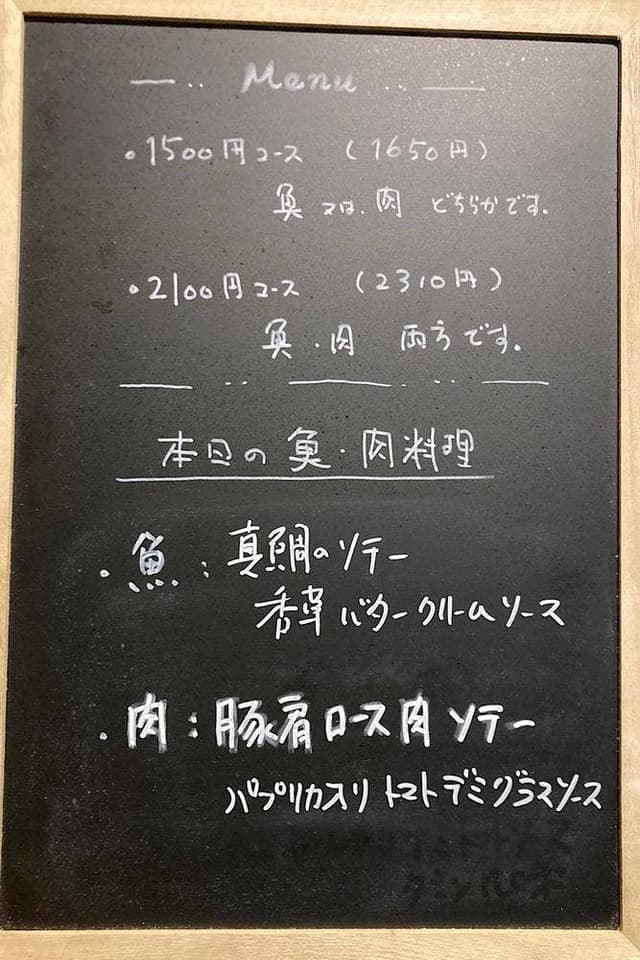 Menu
・1500円コース (1650円)
魚 又は、肉 どちらかです。
・2100円コース (2310円)
魚・肉 両方です。
本日の 魚・肉料理
・魚:真鯛のソテー
香草バタークリームソース
・肉:豚肩ロース肉ソテー
パプリカ入りトマトデミグラスソース